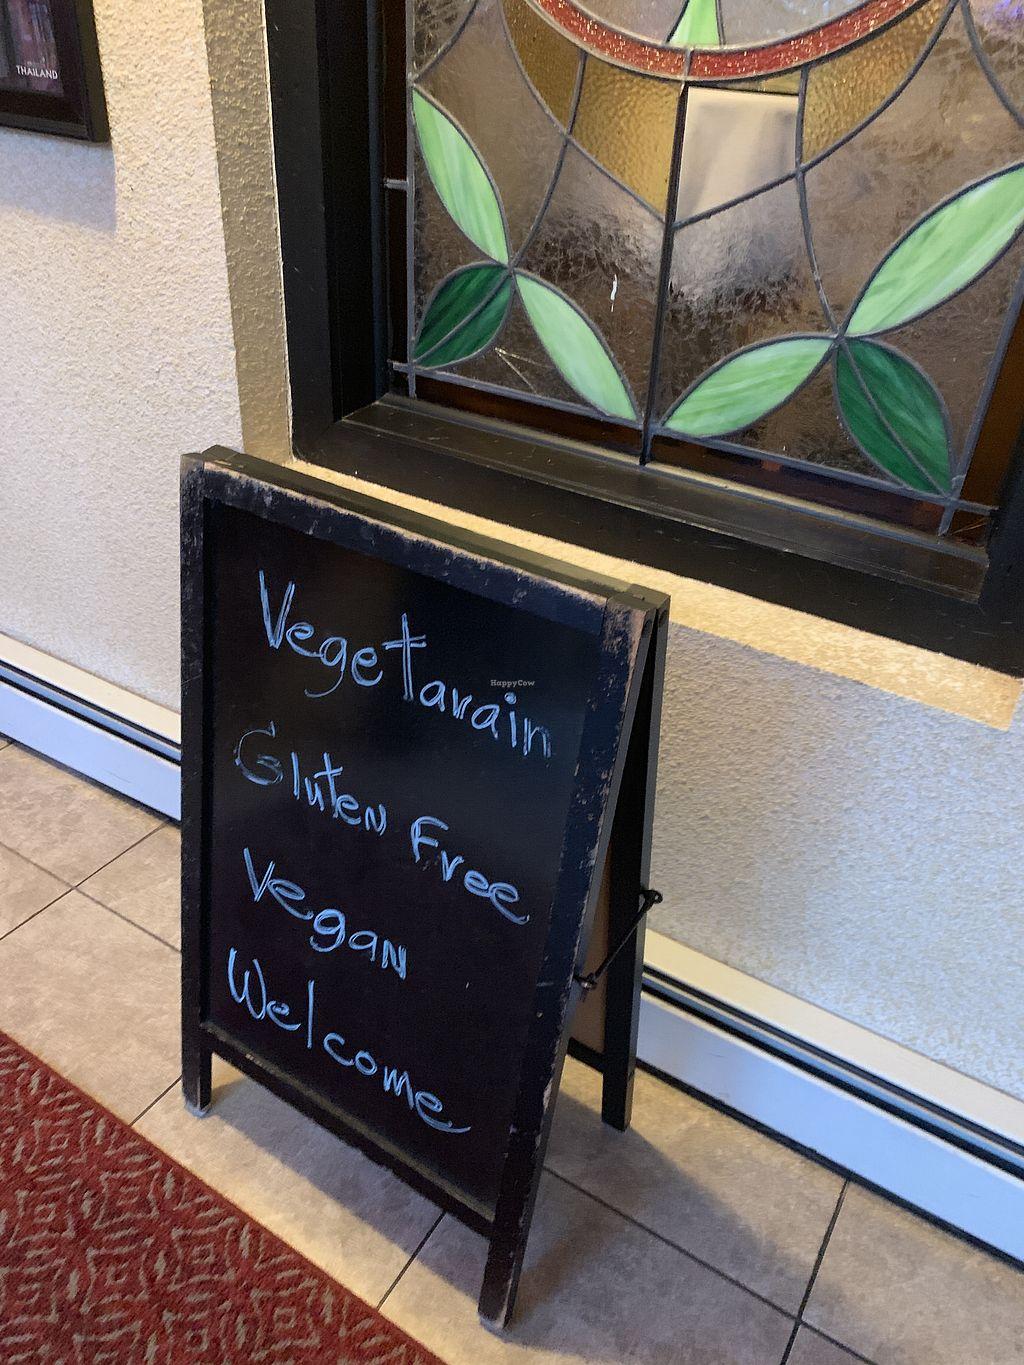 THAILAND
Vegetarain
HappyCow
Gluten Free
Vegan
Welcome